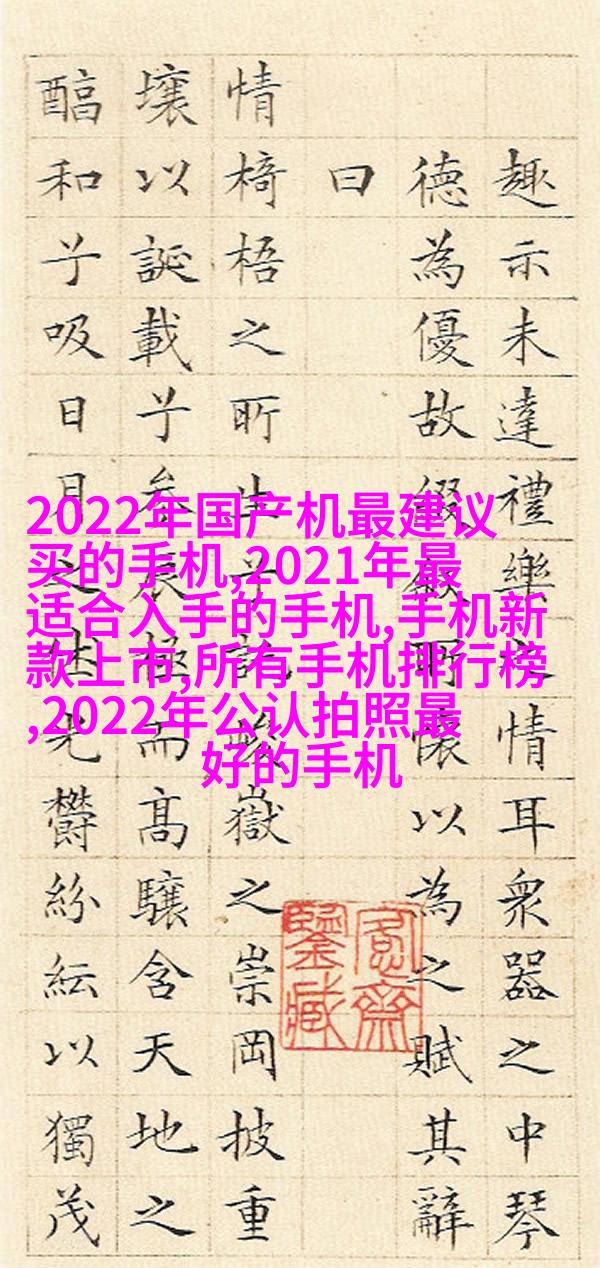 趣示未達禮樂之情耳衆器之中琴
德為優故綴敘所懷以為之賦其辭
曰
情椅梧之所生兮託峻嶽之崇岡披重
壤以誕載兮參辰極而髙驤含天地之
醕和兮吸日月之休光鬱紛紜以獨茂
2022年国产机最建议
买的手机,2021年最
适合入手的手机,手机新
款上市,所有手机排行榜
,2022年公认拍照最
好的手机
愙齋
鑒藏